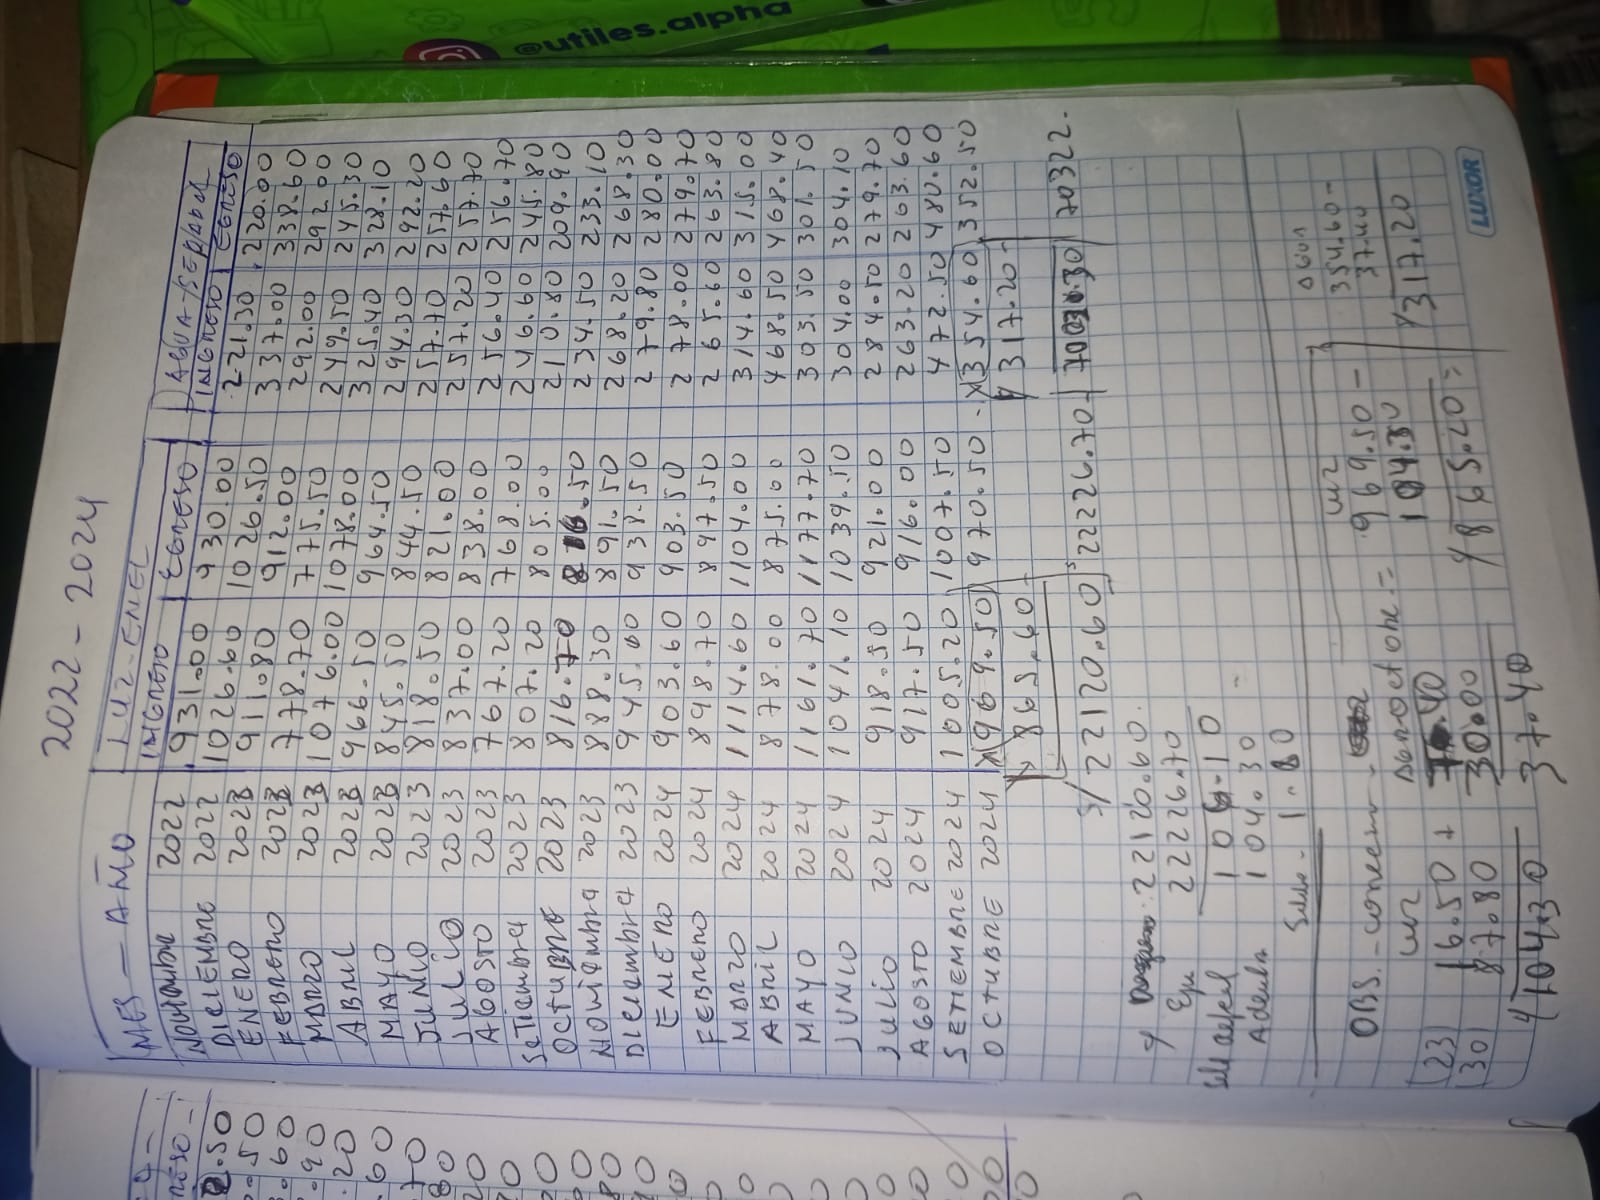 2022 - 2024
MES - AÑO LUZ-ENEL
INGRESO EGRESO AGUA-/SEDAPAL
INGRESO EGRESO
Noviembre 2022 931.00 930.00 221.30 220.00
DICIEMBRE 2022 1026.60 1026.50 337.00 338.60
ENERO 2023 911.80 912.00 292.00 292.00
FEBRERO 2023 778.70 775.50 249.50 245.30
MARZO 2023 1076.00 1078.00 325.40 328.10
ABRIL 2023 966.50 964.50 294.30 292.20
MAYO 2023 845.50 844.50 257.70 257.60
JUNIO 2023 818.50 821.00 257.20 257.70
JULIO 2023 837.00 838.00 256.40 256.70
AGOSTO 2023 767.20 768.00 246.60 245.80
SeTiembre 2023 807.20 805.00 210.80 209.90
OCTUBRE 2023 816.70 816.50 234.50 233.10
Noviembre 2023 888.30 891.50 268.20 268.30
Diciembre 2023 945.00 938.50 279.80 280.00
ENERO 2024 903.60 903.50 278.00 279.70
FEBRERO 2024 898.70 897.50 265.60 263.80
MARZO 2024 1114.60 1104.00 314.60 315.00
ABRIL 2024 878.00 875.00 468.50 468.40
MAYO 2024 1161.70 1177.70 303.50 301.50
JUNIO 2024 1041.10 1039.50 304.00 304.10
JULIO 2024 918.50 921.00 284.50 279.70
AGOSTO 2024 927.50 916.00 263.20 263.60
SETIEMBRE 2024 1005.20 1007.50 472.50 480.60
OCTUBRE 2024 969.50 970.50 - 354.60 352.50
865.60 317.20
S/22120.60 22226.70 70322.
22120.60
22226.70
106.10
104.30
Saldo - 1.80
OBS.
LUZ AGUA
969.50 - 354.60 -
104.30 37.40
865.20 = 317.20
LUZ
(23) 16.50 + 7.40
(30) 87.80 30.00
104.30 37.40
LUXOR
@utiles.alpha